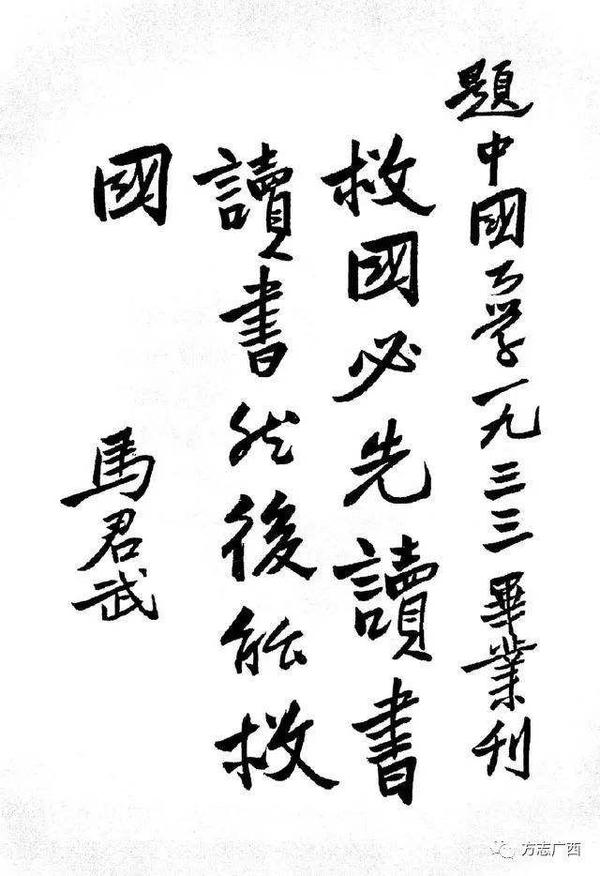 題中國公學一九三三畢業刊
救國必先讀書
讀書然後能救
國
馬君武
方志广西